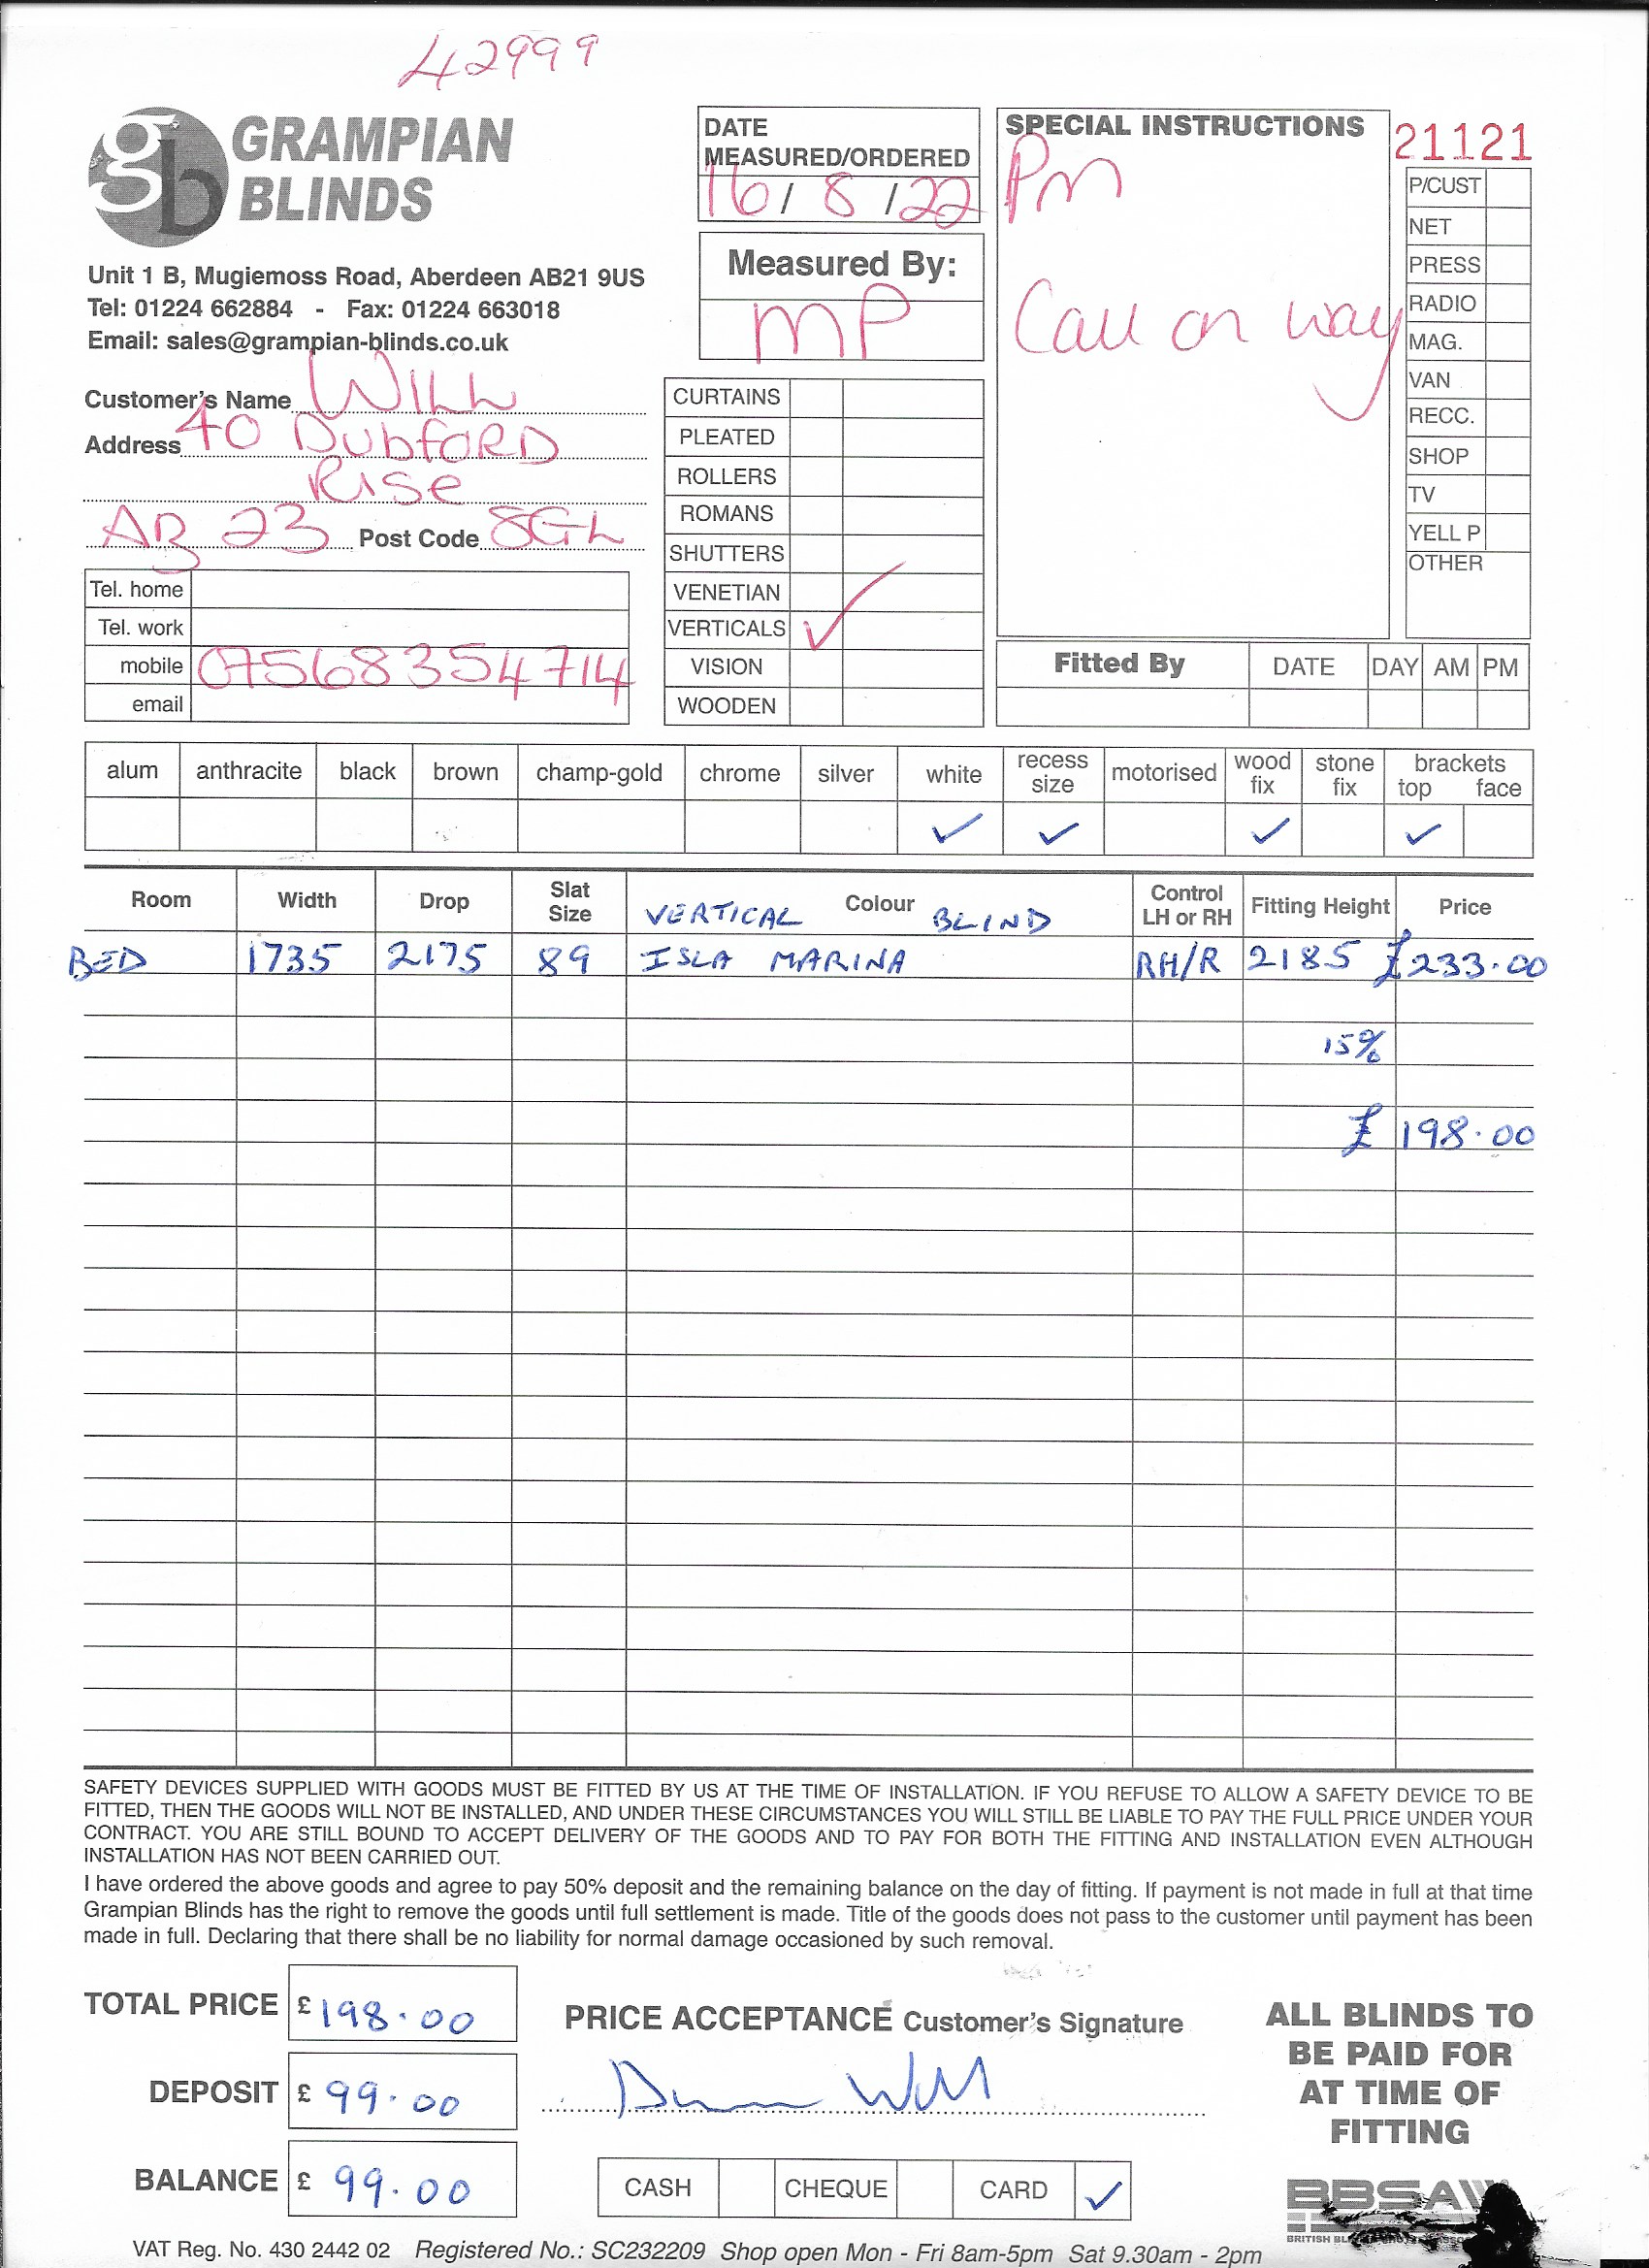 42999
GRAMPIAN
BLINDS
Unit 1 B, Mugiemoss Road, Aberdeen AB21 9US
Tel: 01224 662884 - Fax: 01224 663018
Email: sales@grampian-blinds.co.uk
Customer's Name WILL
Address 40 DUBFORD
RISE
AB 23 Post Code 8GL
Tel. home
Tel. work
mobile 07568354714
email
DATE
MEASURED/ORDERED
16/ 8 /22
Measured By:
MP
CURTAINS
PLEATED
ROLLERS
ROMANS
SHUTTERS
VENETIAN
VERTICALS ✓
VISION
WOODEN
SPECIAL INSTRUCTIONS
Pm
Call on way
21121
P/CUST
NET
PRESS
RADIO
MAG.
VAN
RECC.
SHOP
TV
YELL P
OTHER
Fitted By DATE DAY AM PM
alum anthracite black brown champ-gold chrome silver white recess size motorised wood fix stone fix brackets top face
✓ ✓ ✓ ✓
Room Width Drop Slat Size VERTICAL Colour BLIND Control LH or RH Fitting Height Price
BED 1735 2175 89 ISLA MARINA RH/R 2185 £233.00
15%
£198.00
SAFETY DEVICES SUPPLIED WITH GOODS MUST BE FITTED BY US AT THE TIME OF INSTALLATION. IF YOU REFUSE TO ALLOW A SAFETY DEVICE TO BE
FITTED, THEN THE GOODS WILL NOT BE INSTALLED, AND UNDER THESE CIRCUMSTANCES YOU WILL STILL BE LIABLE TO PAY THE FULL PRICE UNDER YOUR
CONTRACT. YOU ARE STILL BOUND TO ACCEPT DELIVERY OF THE GOODS AND TO PAY FOR BOTH THE FITTING AND INSTALLATION EVEN ALTHOUGH
INSTALLATION HAS NOT BEEN CARRIED OUT.
I have ordered the above goods and agree to pay 50% deposit and the remaining balance on the day of fitting. If payment is not made in full at that time
Grampian Blinds has the right to remove the goods until full settlement is made. Title of the goods does not pass to the customer until payment has been
made in full. Declaring that there shall be no liability for normal damage occasioned by such removal.
TOTAL PRICE £198.00
DEPOSIT £ 99.00
BALANCE £ 99.00
PRICE ACCEPTANCE Customer's Signature
CASH CHEQUE CARD ✓
ALL BLINDS TO
BE PAID FOR
AT TIME OF
FITTING
BBSA
BRITISH
VAT Reg. No. 430 2442 02 Registered No.: SC232209 Shop open Mon - Fri 8am-5pm Sat 9.30am - 2pm